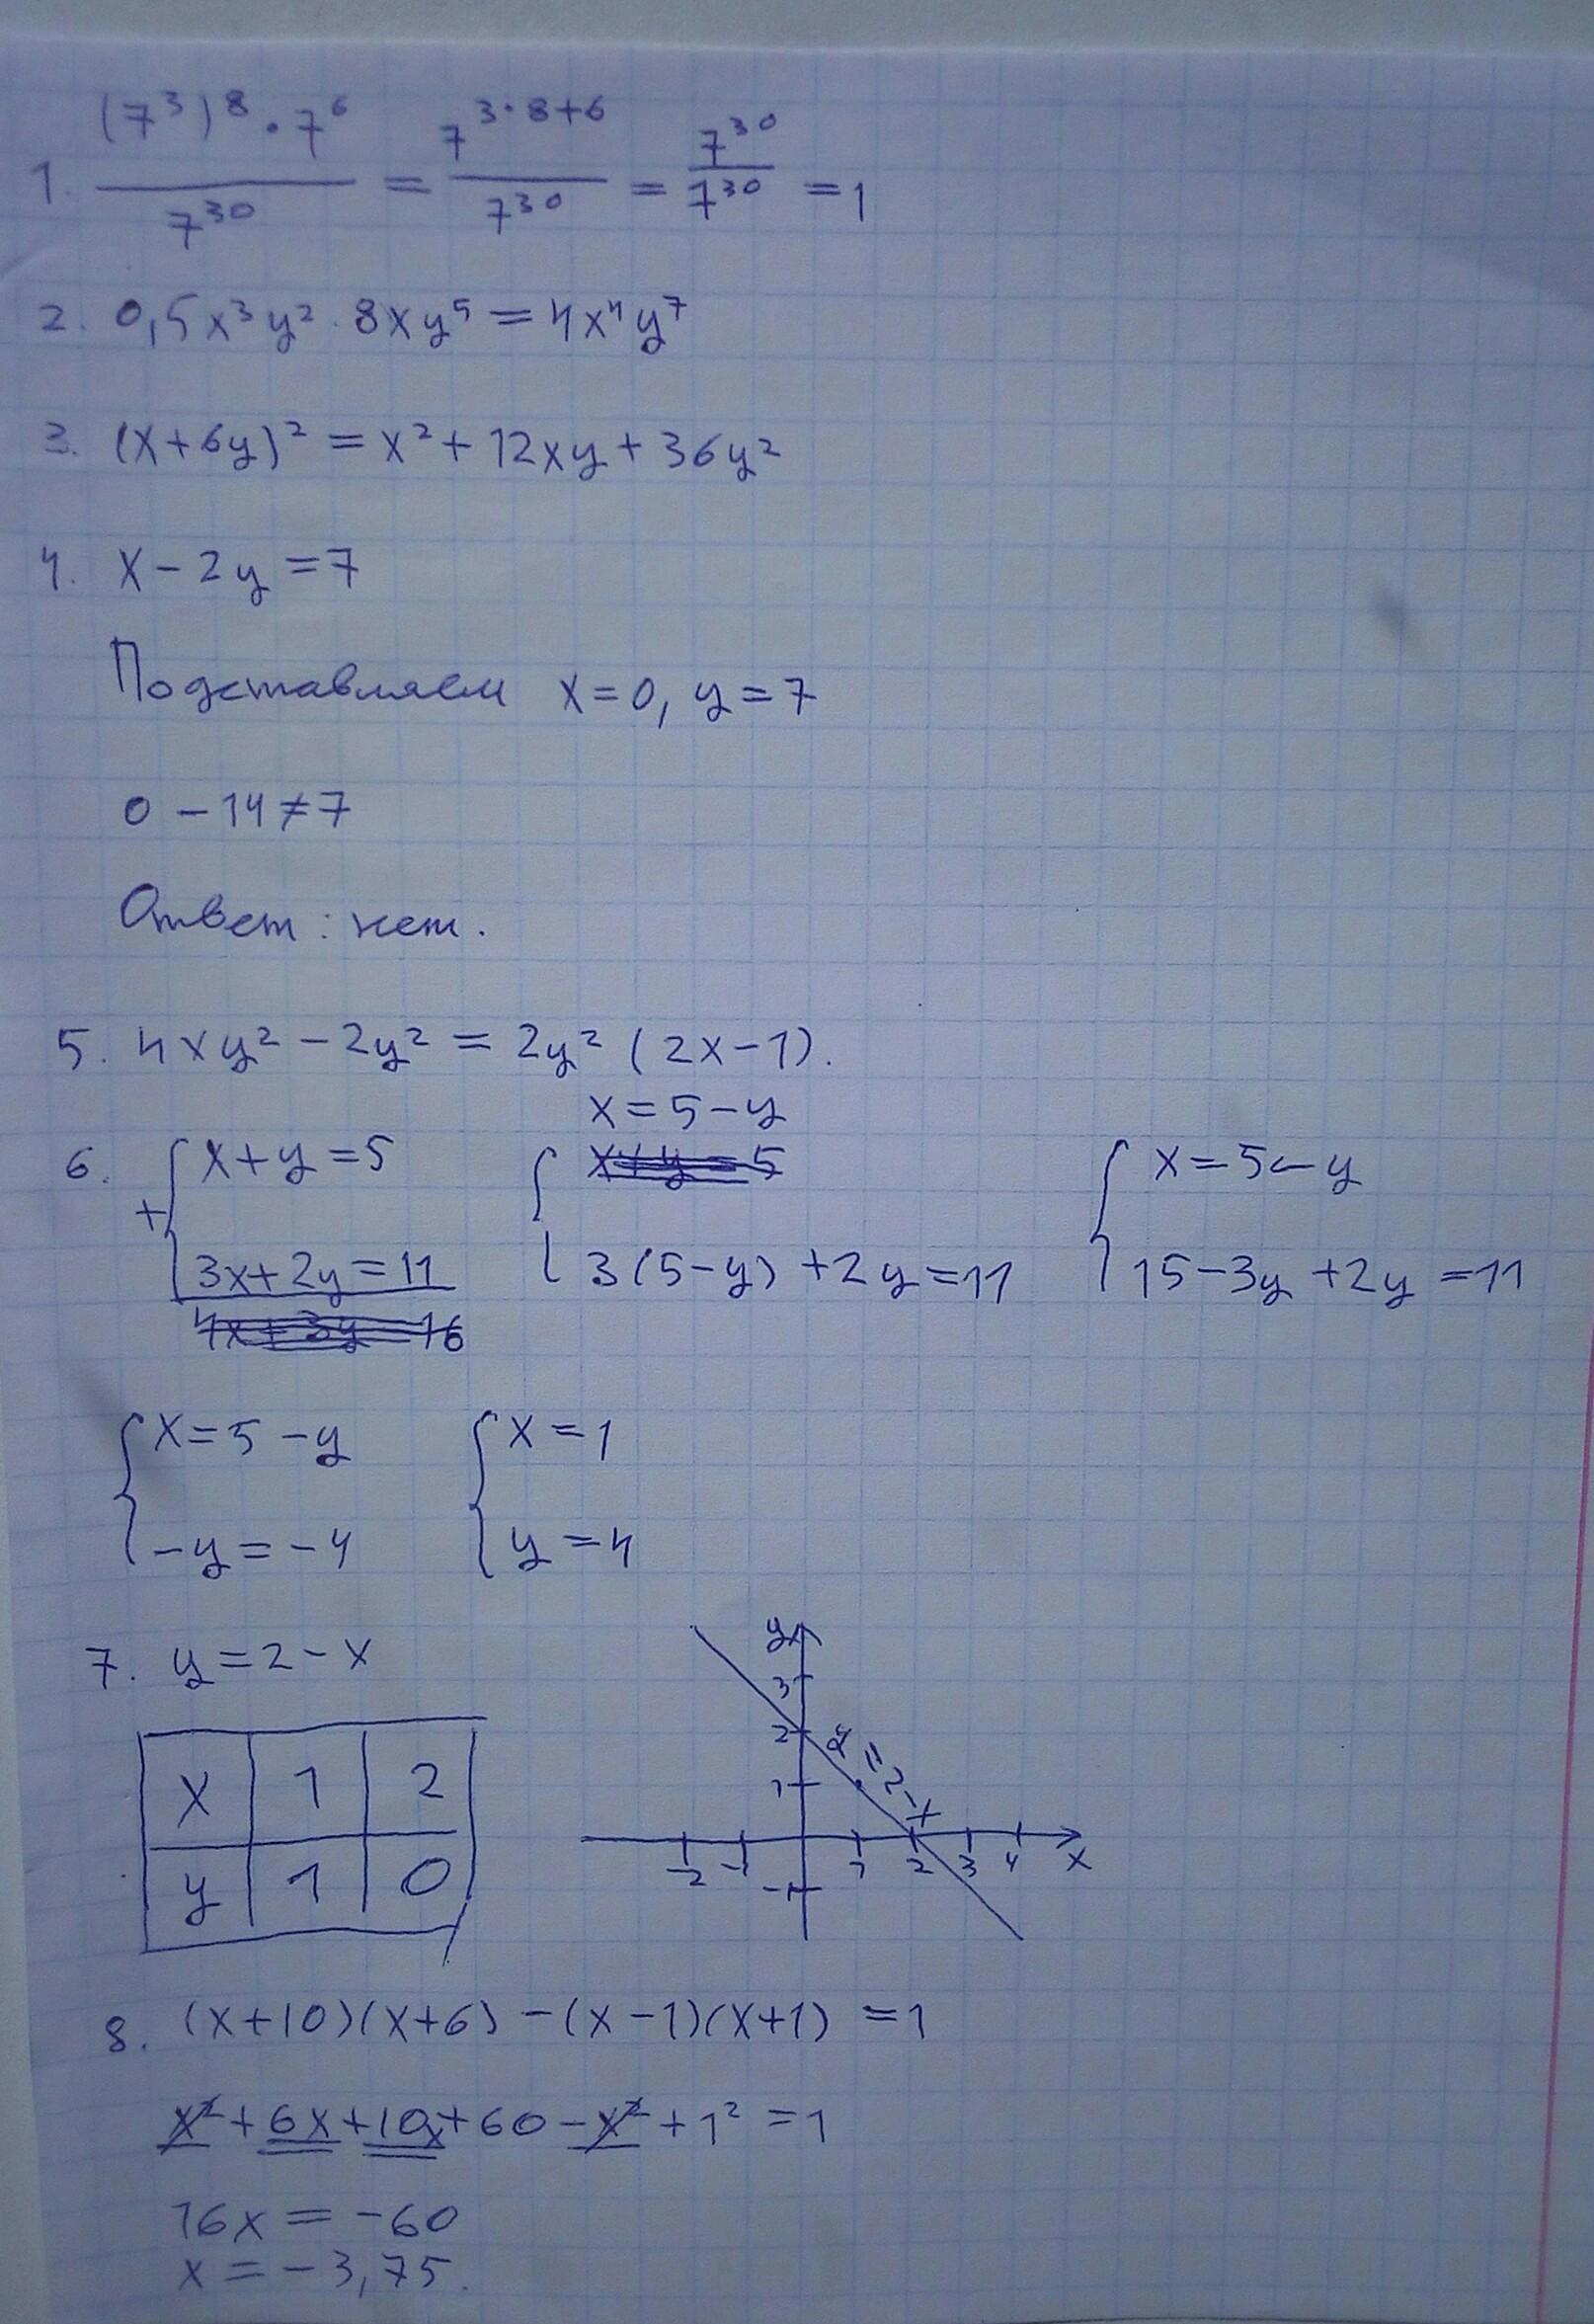 1. (7³)⁸ · 7⁶ / 7³⁰ = 7^(3·8+6) / 7³⁰ = 7³⁰ / 7³⁰ = 1
2. 0,5x³y² · 8xy⁵ = 4x⁴y⁷
3. (x+6y)² = x² + 12xy + 36y²
4. x – 2y = 7
Подставляем x = 0, y = 7
0 – 14 ≠ 7
Ответ: нет.
5. 4xy² – 2y² = 2y² (2x–1).
x = 5 – y
6. + { x+y = 5 { x+y = 5 { x = 5 – y
3x+2y = 11 3(5–y) + 2y = 11 15–3y + 2y = 11
4x+3y = 16
{ x = 5 – y { x = 1
–y = –4 y = 4
7. y = 2 – x
x 1 2
y 1 0
y
3
2
1
-1
-2 -1 1 2 3 4 x
y = 2 – x
8. (x+10)(x+6) – (x–1)(x+1) = 1
x² + 6x + 10x + 60 – x² + 1² = 1
16x = –60
x = –3,75.